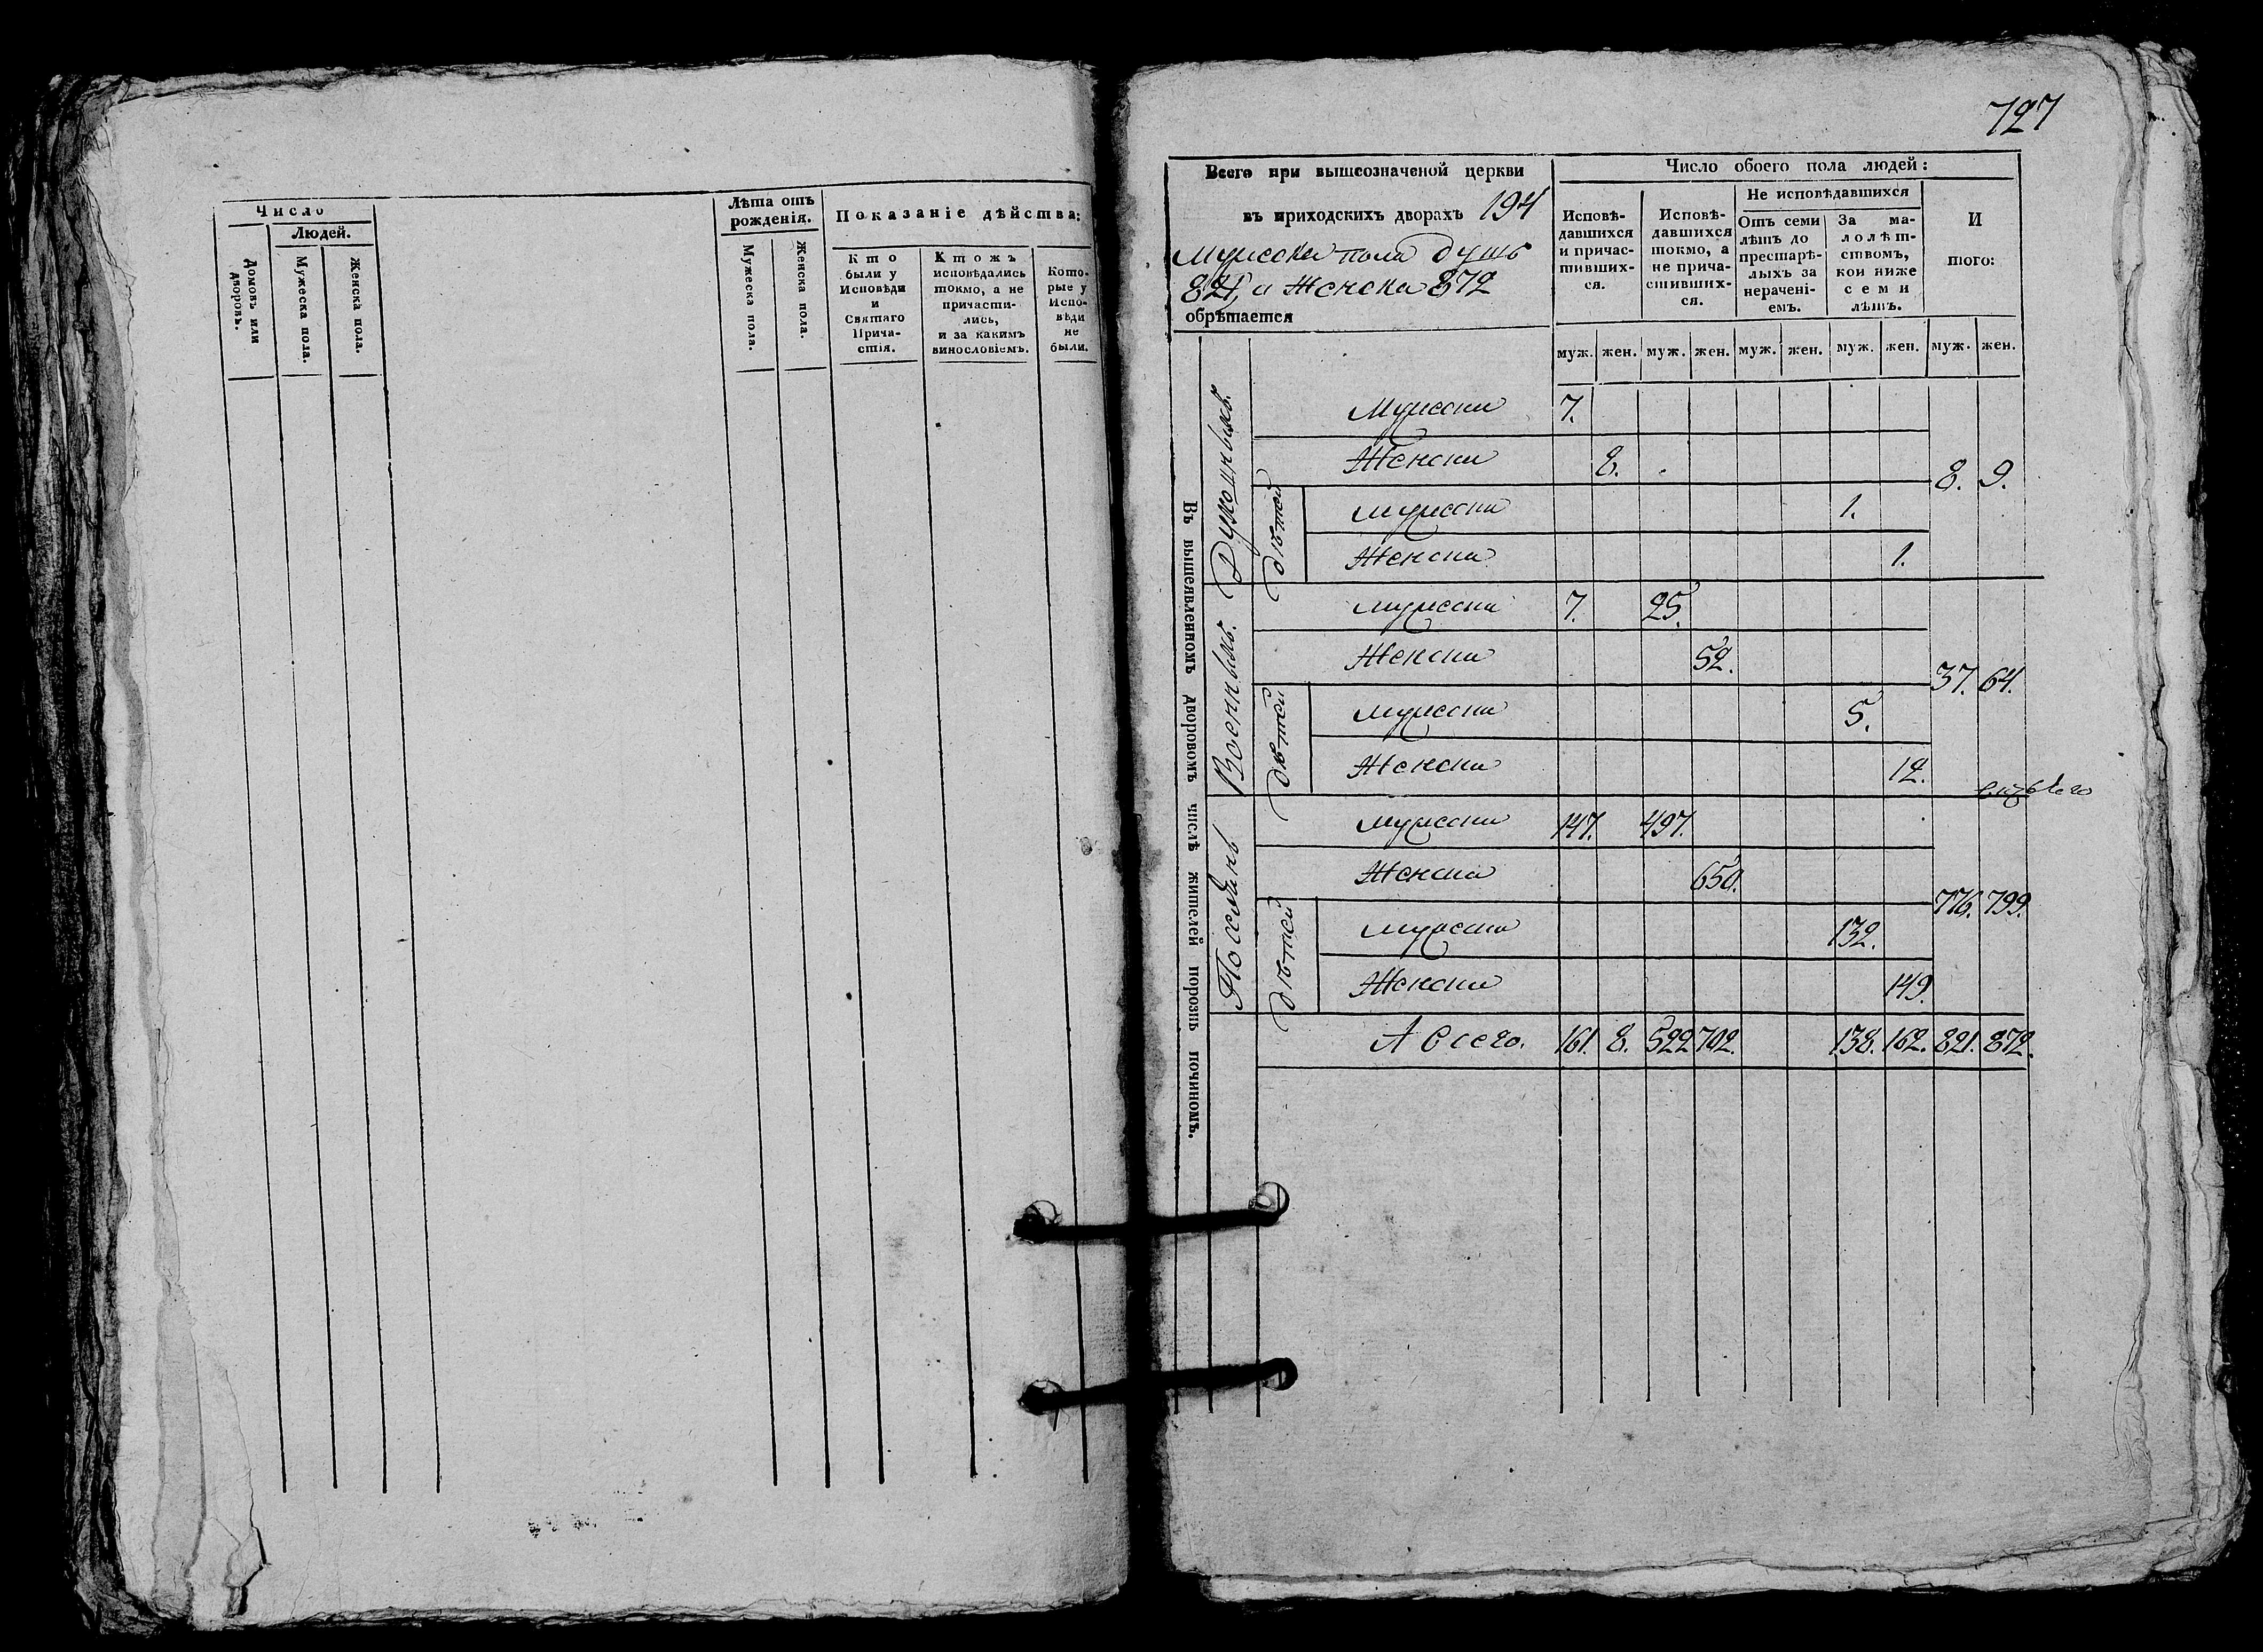 Число
Людей.
Домовъ или дворовъ.
Мужеска пола.
Женска пола.
Лѣта отъ
рожденія.
Мужеска пола.
Женска пола.
Показаніе дѣйства:
Кто
были у
Исповѣди
и
Святаго
Прича-
стія.
Ктожъ
исповѣдались
токмо, а не
причасти-
лись,
и за какимъ
винословіемъ.
Кото-
рые у
Испо-
вѣди
не
были.
727
Всего при вышеозначеной церкви
въ приходскихъ дворахъ 194
мужеска пола душъ
821, а женска 872
обрѣтается
Число обоего пола людей:
Исповѣ-
давшихся
и причас-
тивших-
ся.
Исповѣ-
давшихся
токмо, а
не прича-
стивших-
ся.
Не исповѣдавшихся
Отъ семи
лѣтъ до
престарѣ-
лыхъ за
нерачені-
емъ.
За ма-
лолѣт-
ствомъ,
кои ниже
семи
лѣтъ.
И
того:
муж. жен. муж. жен. муж. жен. муж. жен. муж. жен.
Въ вышеявленномъ дворовомъ числѣ жителей порознь починомъ.
Духовныхъ.
Мужески 7.
Женски 8.
8. 9.
дѣтей
Мужески 1.
Женски 1.
Военныхъ.
Мужески 7. 25.
Женски 52.
37. 64.
дѣтей
Мужески 5.
Женски 12.
Поселянъ
Мужески 147. 497.
Женски 650.
776. 799.
дѣтей
Мужески 132.
Женски 149.
А всего. 161. 8. 522 702. 138. 162. 821. 872.